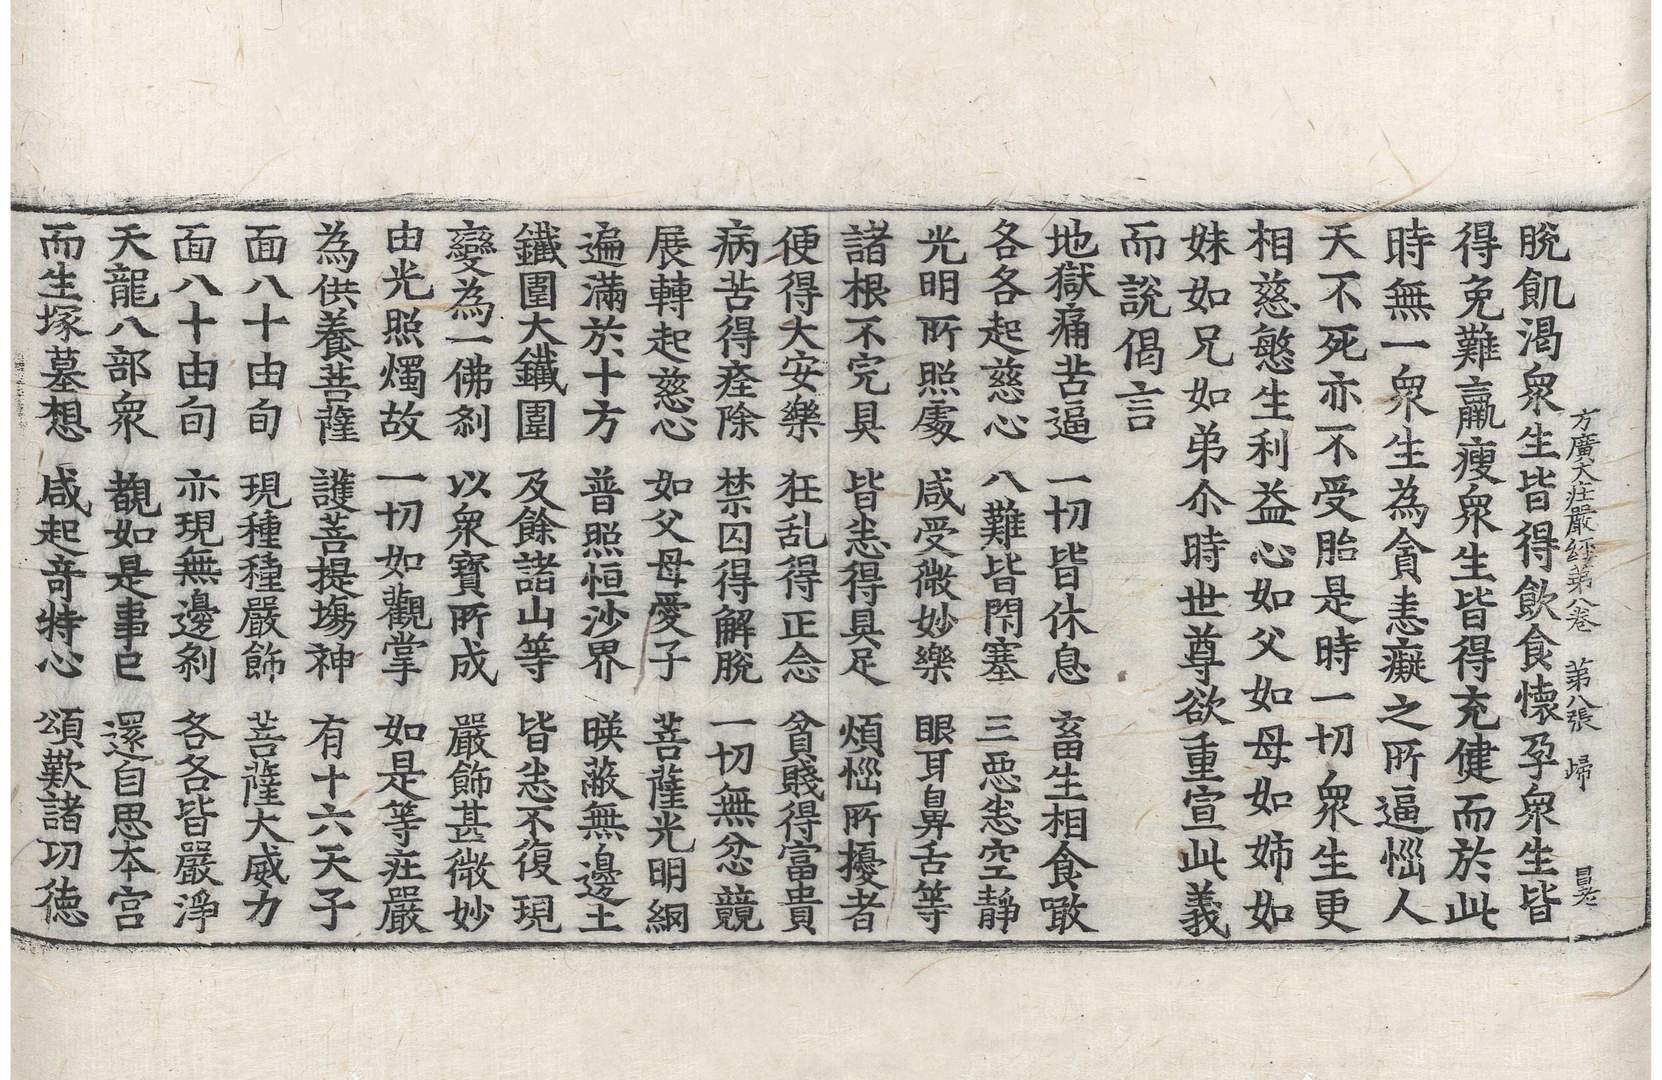 方廣大庄嚴經第八卷 第八張 歸
脫飢渴衆生皆得飮食懷孕衆生皆
得免難羸瘦衆生皆得充健而於此
時無一衆生為貪恚癡之所逼惱人
天不死亦不受胎是時一切衆生更
相慈愍生利益心如父如母如姉如
妹如兄如弟尒時世尊欲重宣此義
而說偈言
地獄痛苦逼 一切皆休息 畜生相食噉
各各起慈心 八難皆閇塞 三惡悉空靜
光明所照處 咸受微妙樂 眼耳鼻舌等
諸根不完具 皆悉得具足 煩惱所擾者
便得大安樂 狂乱得正念 貧賤得富貴
病苦得痊除 禁囚得解脫 一切無忿競
展轉起慈心 如父母愛子 菩薩光明網
遍滿於十方 普照恒沙界 暎蔽無邊土
鐵圍大鐵圍 及餘諸山等 皆悉不復現
變為一佛刹 以衆寶所成 嚴飾甚微妙
由光照燭故 一切如觀掌 如是等庄嚴
為供養菩薩 護菩提塲神 有十六天子
面八十由旬 現種種嚴飾 菩薩大威力
面八十由旬 亦現無邊刹 各各皆嚴淨
天龍八部衆 覩如是事已 還自思本宮
而生塚墓想 咸起竒特心 頌歎諸功德